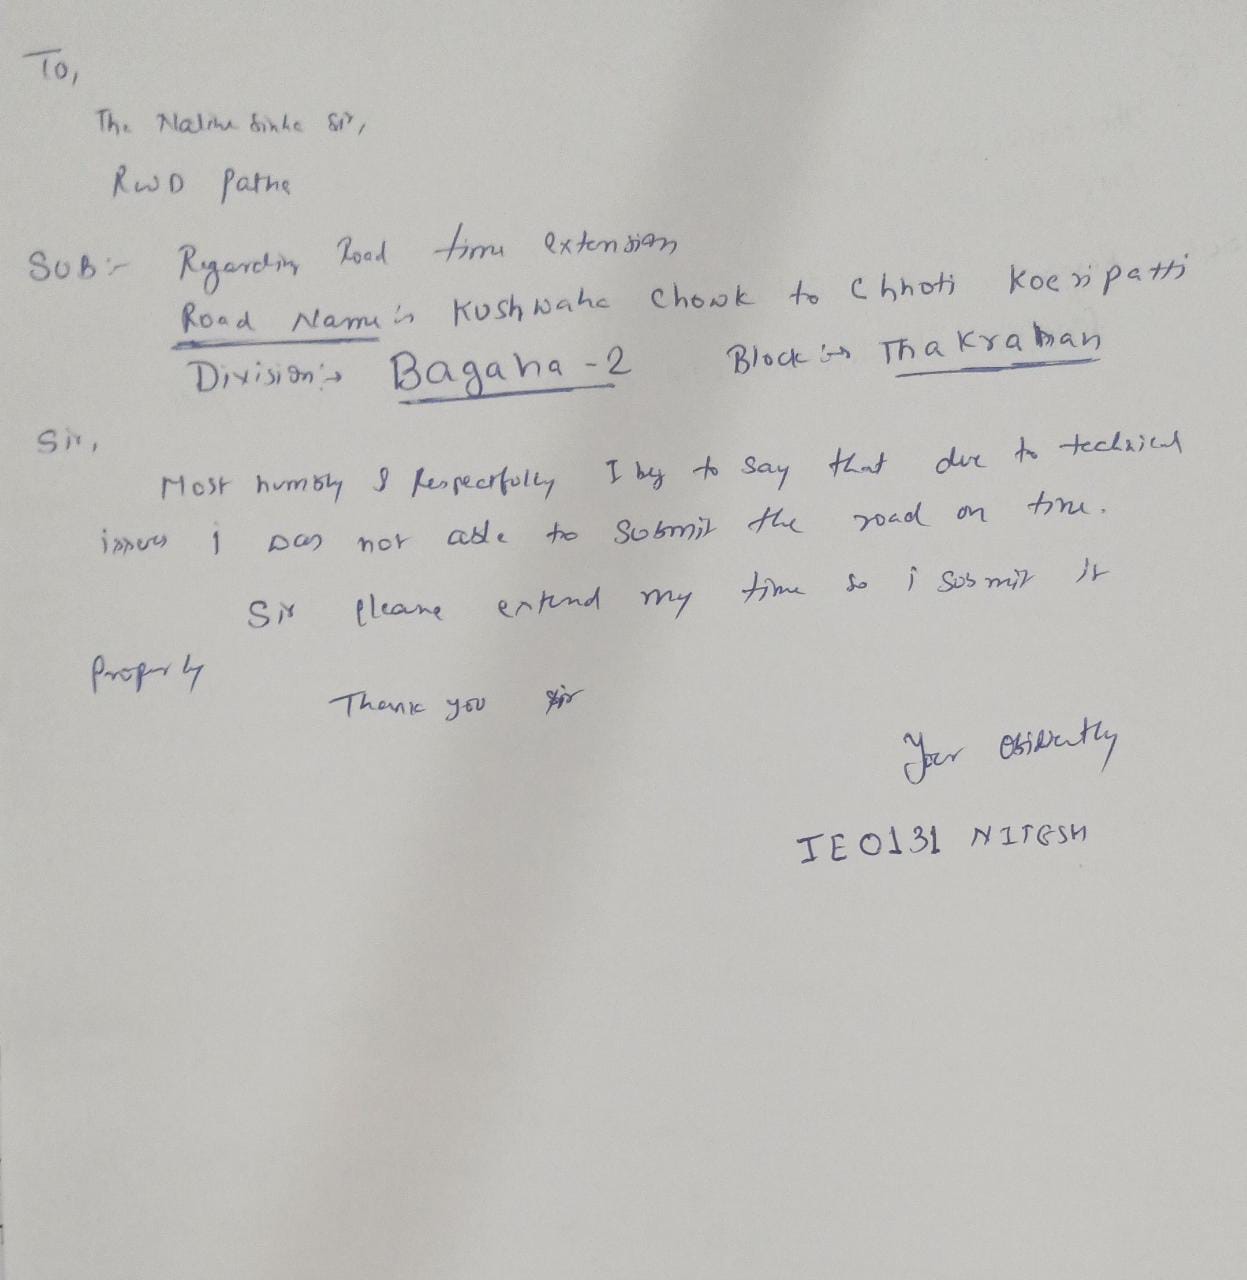 To,
The Naline Sinha Sir,
RWD Patna
SUB:- Regarding Road time extension
Road Name:- Kushwaha Chowk to Chhoti Koeripatti
Division:- Bagaha-2 Block:- Thakrahan
Sir,
Most humbly & Respectfully I beg to say that due to technical
issues i was not able to submit the road on time.
Sir please extend my time so i submit it
Properly
Thank you sir
Your Obidiently
IE0131 NITESH